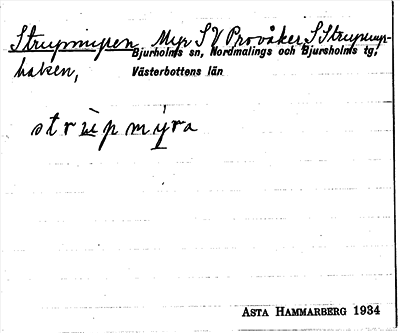 Strupmyren, Myr S V Provåker, S Strupmyr-
Bjurholms sn, Nordmalings och Bjursholms tg,
haken,
Västerbottens län
strùpmýra
ASTA HAMMARBERG 1934